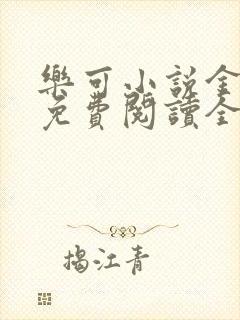 樂可小說全
免費閱讀全
揭江青